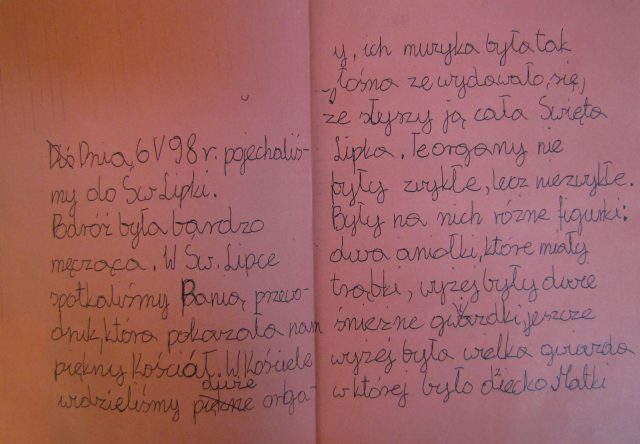 Dnia 6 V 98 r. pojechaliś-
my do Św Lipki.
Podróż była bardzo
męcząca. W Św. Lipce
spotkaliśmy Panią przewo-
dnik, która pokazała nam
piękny Kościół. W Kościele
widzieliśmy duże orga-
y, ich muzyka była tak
głośna ze wydawało, się,
że słyszy ją cała Święta
Lipka. Te organy nie
były zwykłe, lecz niezwykłe.
Były na nich różne figurki:
dwa aniołki, które miały
trąbki, wyżej były dwie
śnieżne gwiazdki jeszcze
wyżej była wielka gwiazda
w której było dziecko Matki